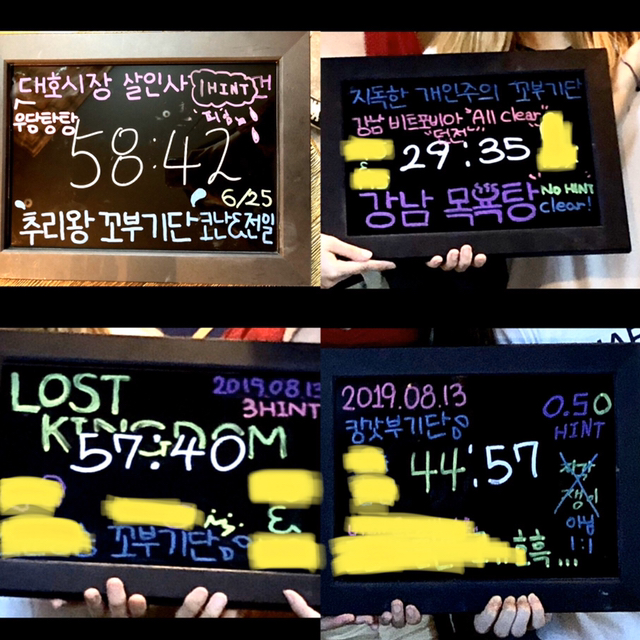 대호시장 살인사건
1HINT
우당탕탕
58:42
6/25
추리왕 꼬부기단 코난&전일
지독한 개인주의 꼬부기단
강남 비트포비아 "All clear"
"덕전"
29:35
&
강남 목욕탕
NO HINT
clear!
LOST
KINGDOM
2019.08.13
3HINT
57:40
꼬부기단
&
2019.08.13
캉갓부기단
44:57
0.50
HINT
아님
1:1
흑...